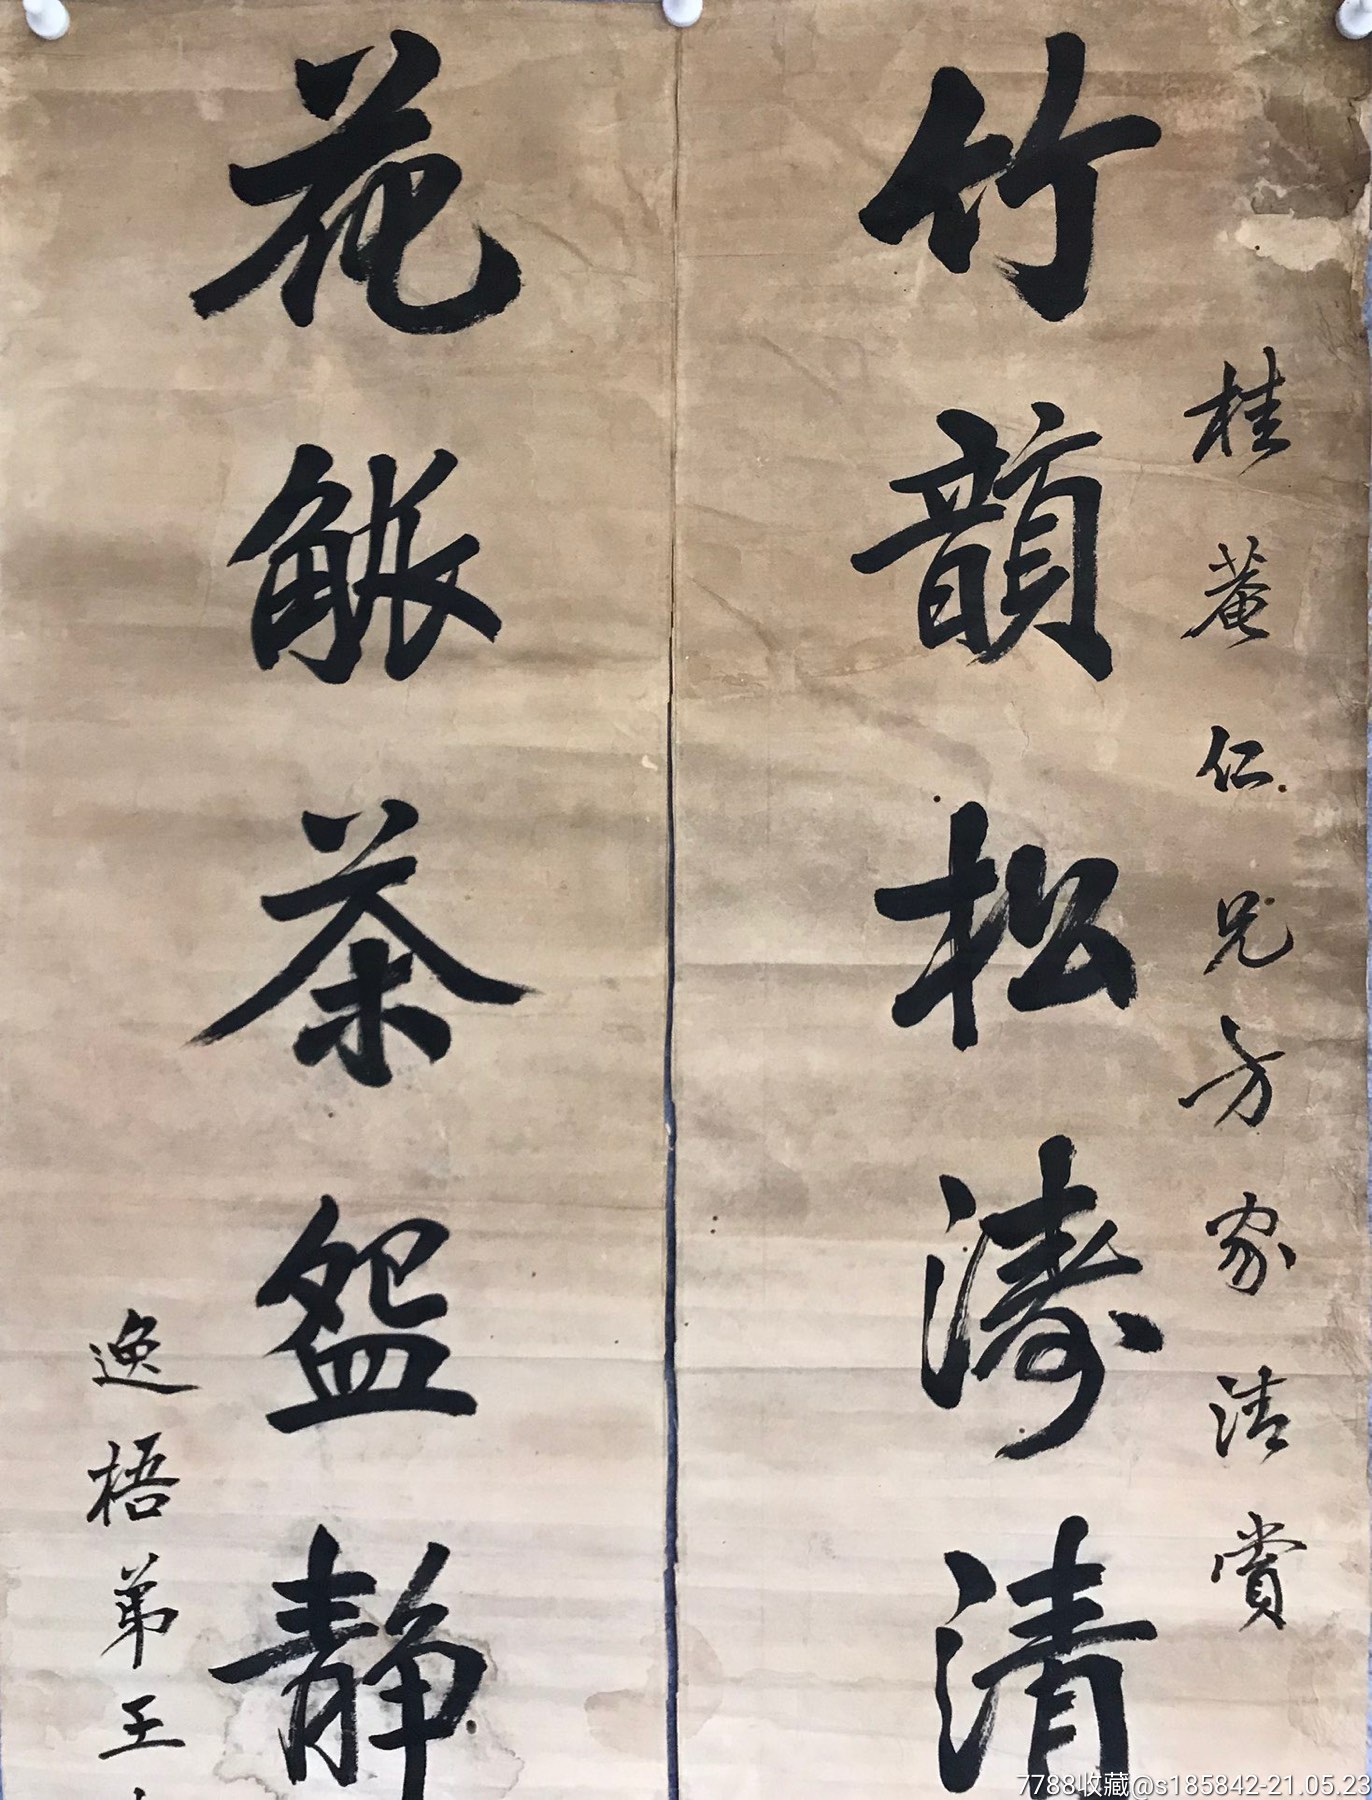 桂菴仁兄方家清賞
竹韻松濤清
花茶盌靜
逸梧弟王
7788收藏@s185842-21.05.23